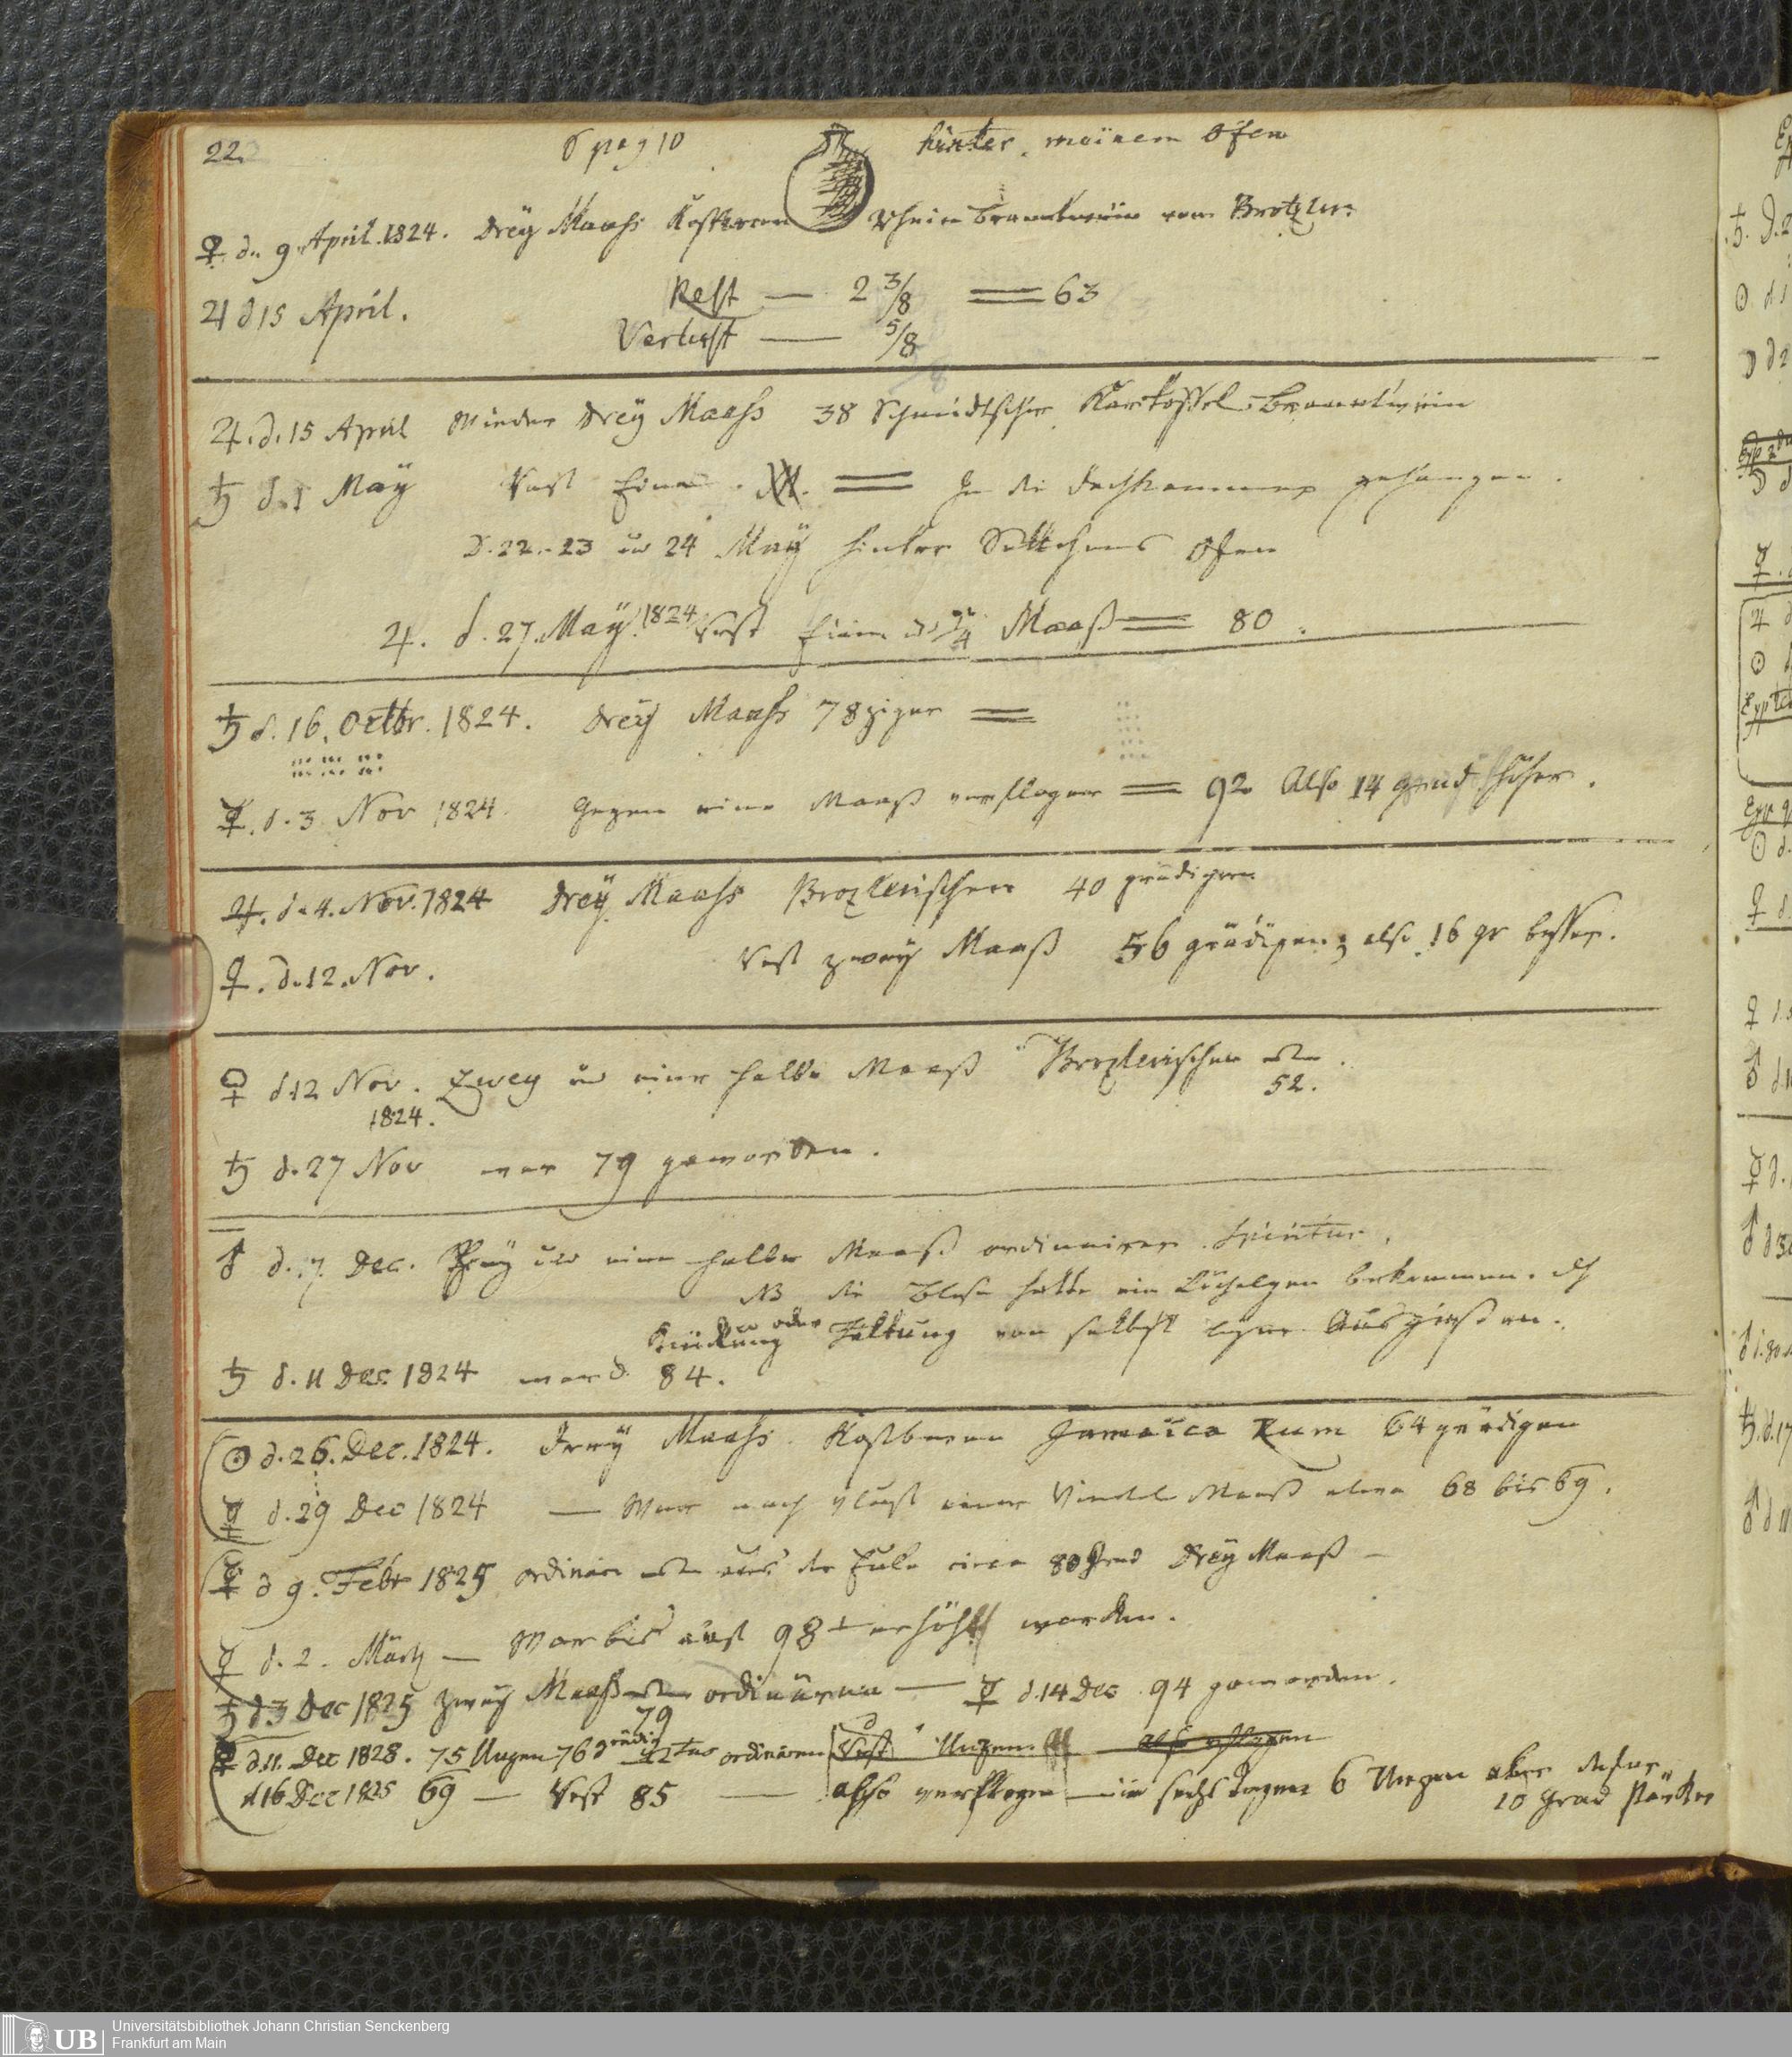 22.
6 pag 10 hinter meinem Ofen
♀ d. 9. April. 1824. Drey Maaß Kostbaren Rhein Branntwein vom Brotzler.
♃ d 15 April. Rest — 2 3/8 = 63
Verlust — 5/8
♃. d. 15 April Wieder Drey Maaß 38 Schmidtscher Kartoffel-Branntwein
♄ d. 1 May Rest Eine = In die Dachkammer gehangen.
D. 22.-23 u 24 May hinter Ofen
♃. d. 27. May. 1824 Rest Maaß = 80.
♄ d. 16. Octbr. 1824. Drey Maaß 78ziger =
☿. d. 3 Nov 1824. Gegen eine Maaß verflogen = 92 Also 14 grad höher.
♃. d. 4. Nov. 1824 Drey Maaß Brozlerischen 40 grädigen
♀. d. 12. Nov. Rest zwey Maaß 56 grädigen; also 16 gr besser.
♀ d 12 Nov. Zwey u eine halbe Maaß Brozlerischen
1824. 52.
♄ d. 27 Nov war 79 geworden.
♂ d. 7. Dec. und eine halbe Maaß ordinairer
NB die Blase hatte ein bekommen. d.h.
oder von selbst ausgießen.
♄ d. 11 Dec. 1824 ward 84.
☉ d. 26. Dec. 1824. Drey Maaß Kostbaren Jamaica Rum 64 grädigen
☿ d. 29 Dec 1824 — War nach Verlust einer Viertel Maaß etwa 68 bis 69.
☿ d 9. Febr 1825 ordinair aus der Eule circa 80 Grad Drey Maaß —
☿ d. 2. Märtz — War bis auf 98 erhöht worden.
♄ d 3 Dec 1825 zwey Maaß ordinären — ☿ d. 14 Dec. 94 geworden.
79
d. 11. Dec 1828. 75 Unzen 76 grädig ordinären Rest Unzen also
d 16 Dec 1825 69 — Rest 85 — also verflogen in sechs Tagen 6 Unzen aber dafür
10 Grad stärker
Universitätsbibliothek Johann Christian Senckenberg
UB
Frankfurt am Main